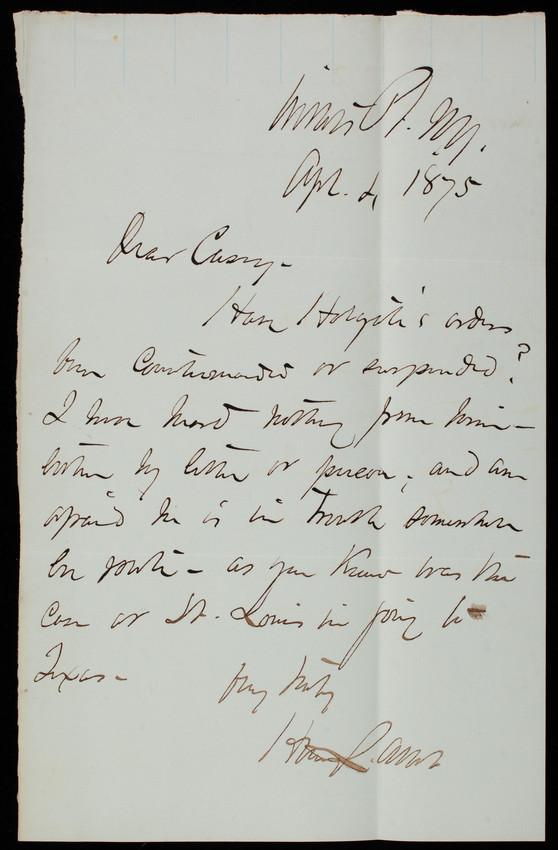 Willets Pt. N.Y.
Apl. 4, 1875
Dear Casey -
Have Holgate's orders
been countermanded or suspended?
I have heard nothing from him -
either by letter or person, and am
afraid he is in trouble somewhere
en route - as you know was the
case at St. Louis in going to
Texas -
Very truly
Henry L. Abbot